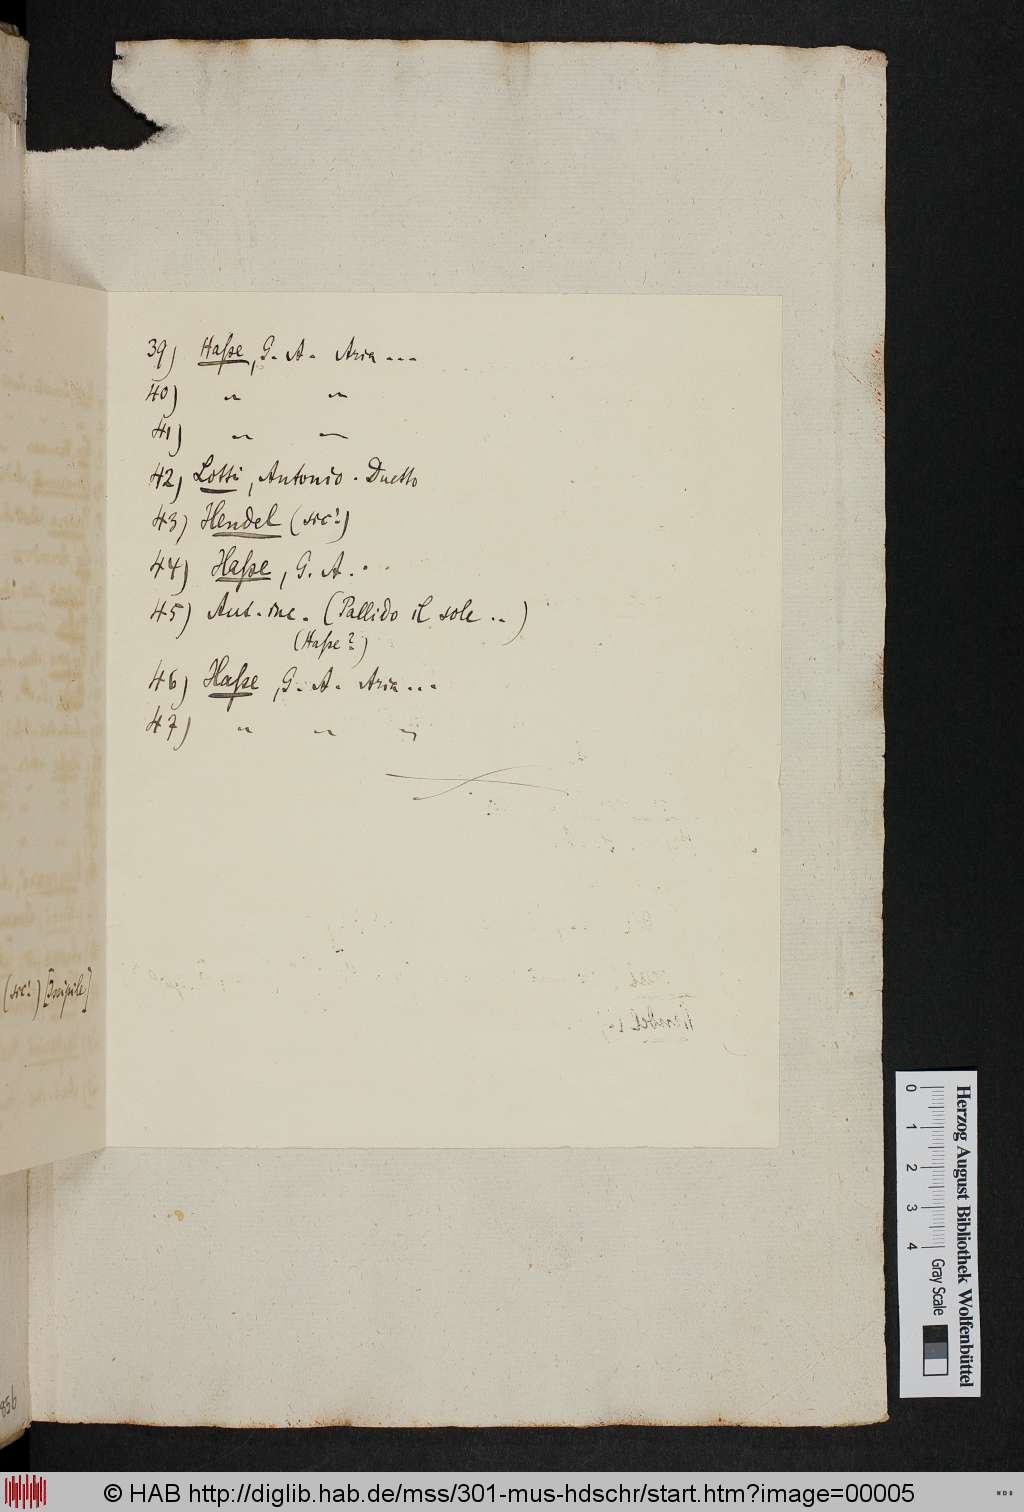 39) Haſse, G. A. Aria ...
40) " "
41) " "
42) Lotti, Antonio. Duetto
43) Hendel (sic!)
44) Haſse, G. A. ..
45) Aut. inc. (Pallido il sole ..)
(Haſse?)
46) Haſse, G. A. Aria ...
47) " " "
(sic!)
Hendel
856
0 1 2 3 4
Gray Scale
Herzog August Bibliothek Wolfenbüttel
© HAB http://diglib.hab.de/mss/301-mus-hdschr/start.htm?image=00005